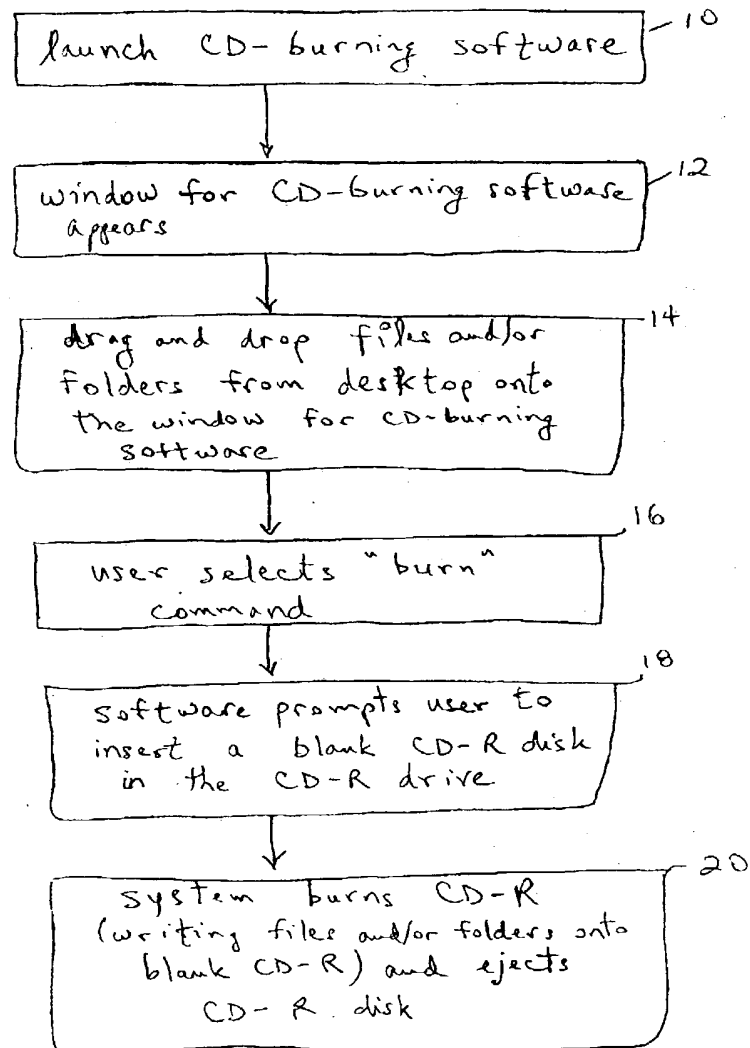 launch CD-burning software
10
window for CD-burning software
appears
12
drag and drop files and/or
folders from desktop onto
the window for CD-burning
software
14
user selects "burn"
command
16
software prompts user to
insert a blank CD-R disk
in the CD-R drive
18
system burns CD-R
(writing files and/or folders onto
blank CD-R) and ejects
CD-R disk
20